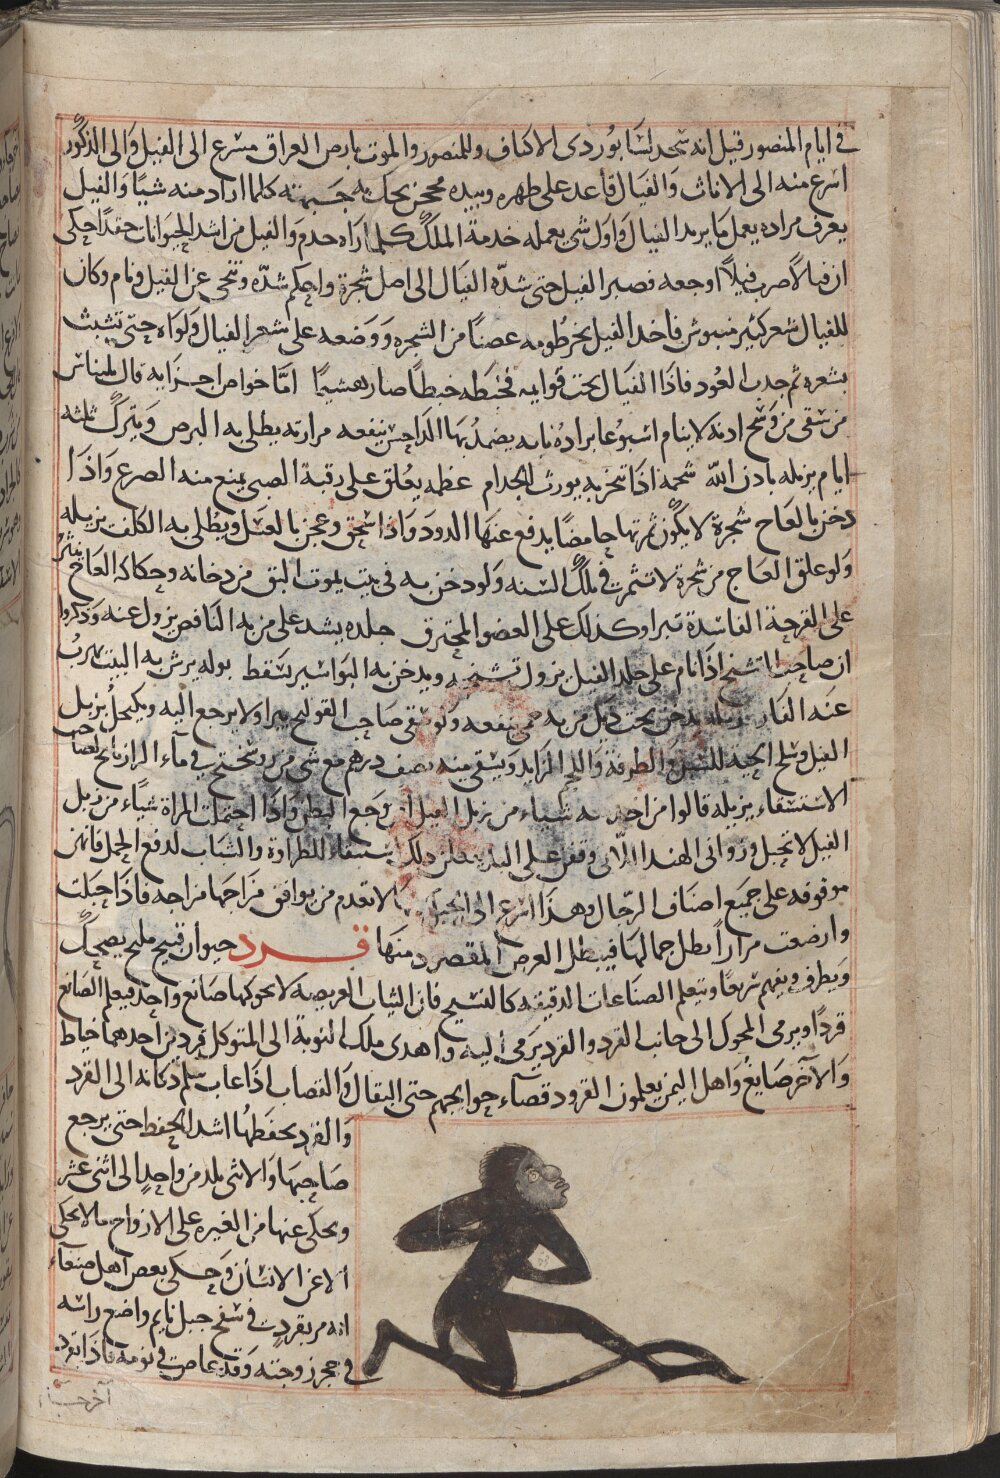 في ايام المنصور قيل انه سجد لسابور ذى الاكتاف وللمنصور والموت بارض العراق مسرع الى الفيل والى الذكور
اسرع منه الى الاناث والفيال قاعد على ظهره وبيده محجن يحك به جبهته كلما اراد منه شيئا والفيل
يعرف مراده يعمل ما يريد الفيال واول شى يعمله خدمة الملك كلما راه خدم والفيل من اشد الحيوانات حقدا حكى
ان فيالا ضرب فيلا اوجعه فصبر الفيل حتى شده الفيال الى اصل شجرة واحكم شده وتنحى عن الفيل ونام وكان
للفيال شعر كثير منبوش فاخذ الفيل بخرطومه غصنا من الشجره ووضعه على شعر الفيال ولواه حتى تشبث
بشعره ثم جذب العود فاذا الفيال تحت قوايمه فخبطه خبطا صار هشيما اما خواص اجزايه قال بليناس
من سقى من وسخ اذنه لا ينام اسبوعا برادة نابه يضمد بها الداحس ينفعه مرارته يطلى به البرص ويترك ثلثه
ايام يزيله باذن الله شحمه اذا تبخر به يورث الجذام عظمه يعلق على رقبة الصبى يمنع منه الصرع واذا
دخن بالعاج شجرة لا يكون ثمرتها حامضا يدفع عنها الدود واذا سحق وعجن بالعسل ويطلى به الكلف يزيله
ولو علق العاج من شجرة لا تثمر في تلك السنه ولو دخن به في بيت يموت البق من دخانه وحكاكة العاج ينثر
على القرحة الفاسدة تبرا وكذلك على العضو المحترق جلده يشد على من به النافض يزول عنه وذكروا
ان صاحب التشنج اذا نام على جلد الفيل يزول تشنجه ويدخن به البواسير تسقط بوله يرش به البيت يهرب
عنه الفار زبله يدخن تحت ذيل من به حمى ينفعه ولو سقى صاحب القولنج يبرا ولا يرجع اليه ويكتحل بزبل
الفيل وسلخ الحية للسبل والطرفة واللحم الزايد ويسقى منه نصف درهم مع شى من في ماء الرازيانج لصاحب
الاستسقاء يزيله قالوا من شياء من زبل الفيل امن وجع البطن واذا احتملت المراة شياء من زبل
الفيل لا تحبل وزوانى الهند اللاتى وقفن على البد يفعلن ذلك استبقاء للطراوة والشباب لدفع الحبل فانهن
موقوفه على جميع اصناف الرجال وهذا اسرع الى الحبل لا تعدم من يوافق مزاجها مزاجه فاذا حبلت
وارضعت مرارا بطل جمالها فيبطل الغرض المقصود منها قرد حيوان قبيح مليح يضحك
ويطرف ويفهم سريعا ويتعلم الصناعات الدقيقه كالنسج فان الثياب العريضه لا يحوكها صانع واحد فيعلم الصانع
قردا ويرمى المحوك الى جانب القرد والقرد يرمى اليه واهدى ملك النوبة الى المتوكل قردين احدهما خياط
والآخر صايغ واهل اليمن يعلمون القرود قضاء حوايجهم حتى البقال والقصاب اذا غاب سلم دكانه الى القرد
والقرد يحفظها اشد الحفظ حتى يرجع
صاحبها والانثى يلد من واحد الى اثنى عشر
ويحكى عنها من الغيره على الازواج مالا يحكى
الا عن الانسان وحكى بعض اهل صنعاء
انه مر بقرد في سفح جبل نايم واضع راسه
في حجر زوجته وقد غاص في نومة فاذا بقرد
آخر جاء